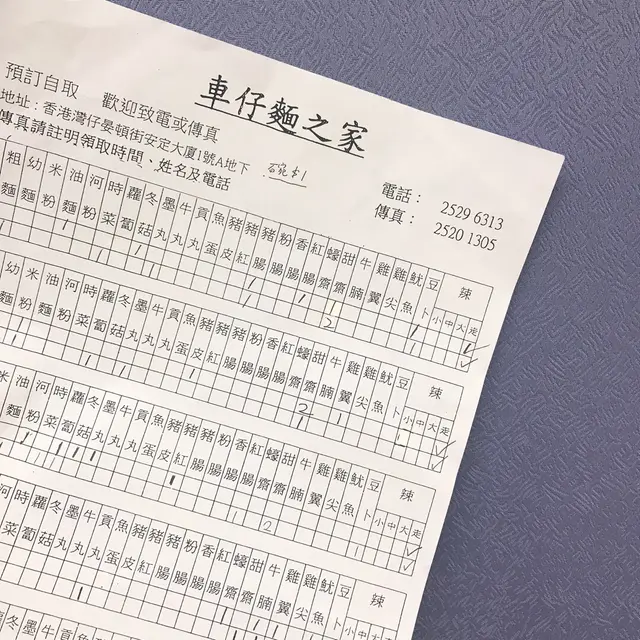 車仔麵之家
預訂自取 歡迎致電或傳真
地址：香港灣仔晏頓街安定大廈1號A地下
碗$1
傳真請註明領取時間、姓名及電話
電話： 2529 6313
傳真： 2520 1305
粗 幼 米 油 河 時 蘿 冬 墨 牛 貢 魚 豬 豬 豬 粉 香 紅 蠔 甜 牛 雞 雞 魷 豆 辣
麵 麵 粉 麵 粉 菜 蔔 菇 丸 丸 丸 蛋 皮 紅 腸 腸 腸 腸 齋 齋 腩 翼 尖 魚 卜 小 中 大 走
幼 米 油 河 時 蘿 冬 墨 牛 貢 魚 豬 豬 豬 粉 香 紅 蠔 甜 牛 雞 雞 魷 豆 辣
麵 粉 麵 粉 菜 蔔 菇 丸 丸 丸 蛋 皮 紅 腸 腸 腸 腸 齋 齋 腩 翼 尖 魚 卜 小 中 大 走
米 油 河 時 蘿 冬 墨 牛 貢 魚 豬 豬 豬 粉 香 紅 蠔 甜 牛 雞 雞 魷 豆 辣
麵 粉 菜 蔔 菇 丸 丸 丸 蛋 皮 紅 腸 腸 腸 腸 齋 齋 腩 翼 尖 魚 卜 小 中 大 走
河 時 蘿 冬 墨 牛 貢 魚 豬 豬 豬 粉 香 紅 蠔 甜 牛 雞 雞 魷 豆 辣
菜 蔔 菇 丸 丸 丸 蛋 皮 紅 腸 腸 腸 腸 齋 齋 腩 翼 尖 魚 卜 小 中 大 走